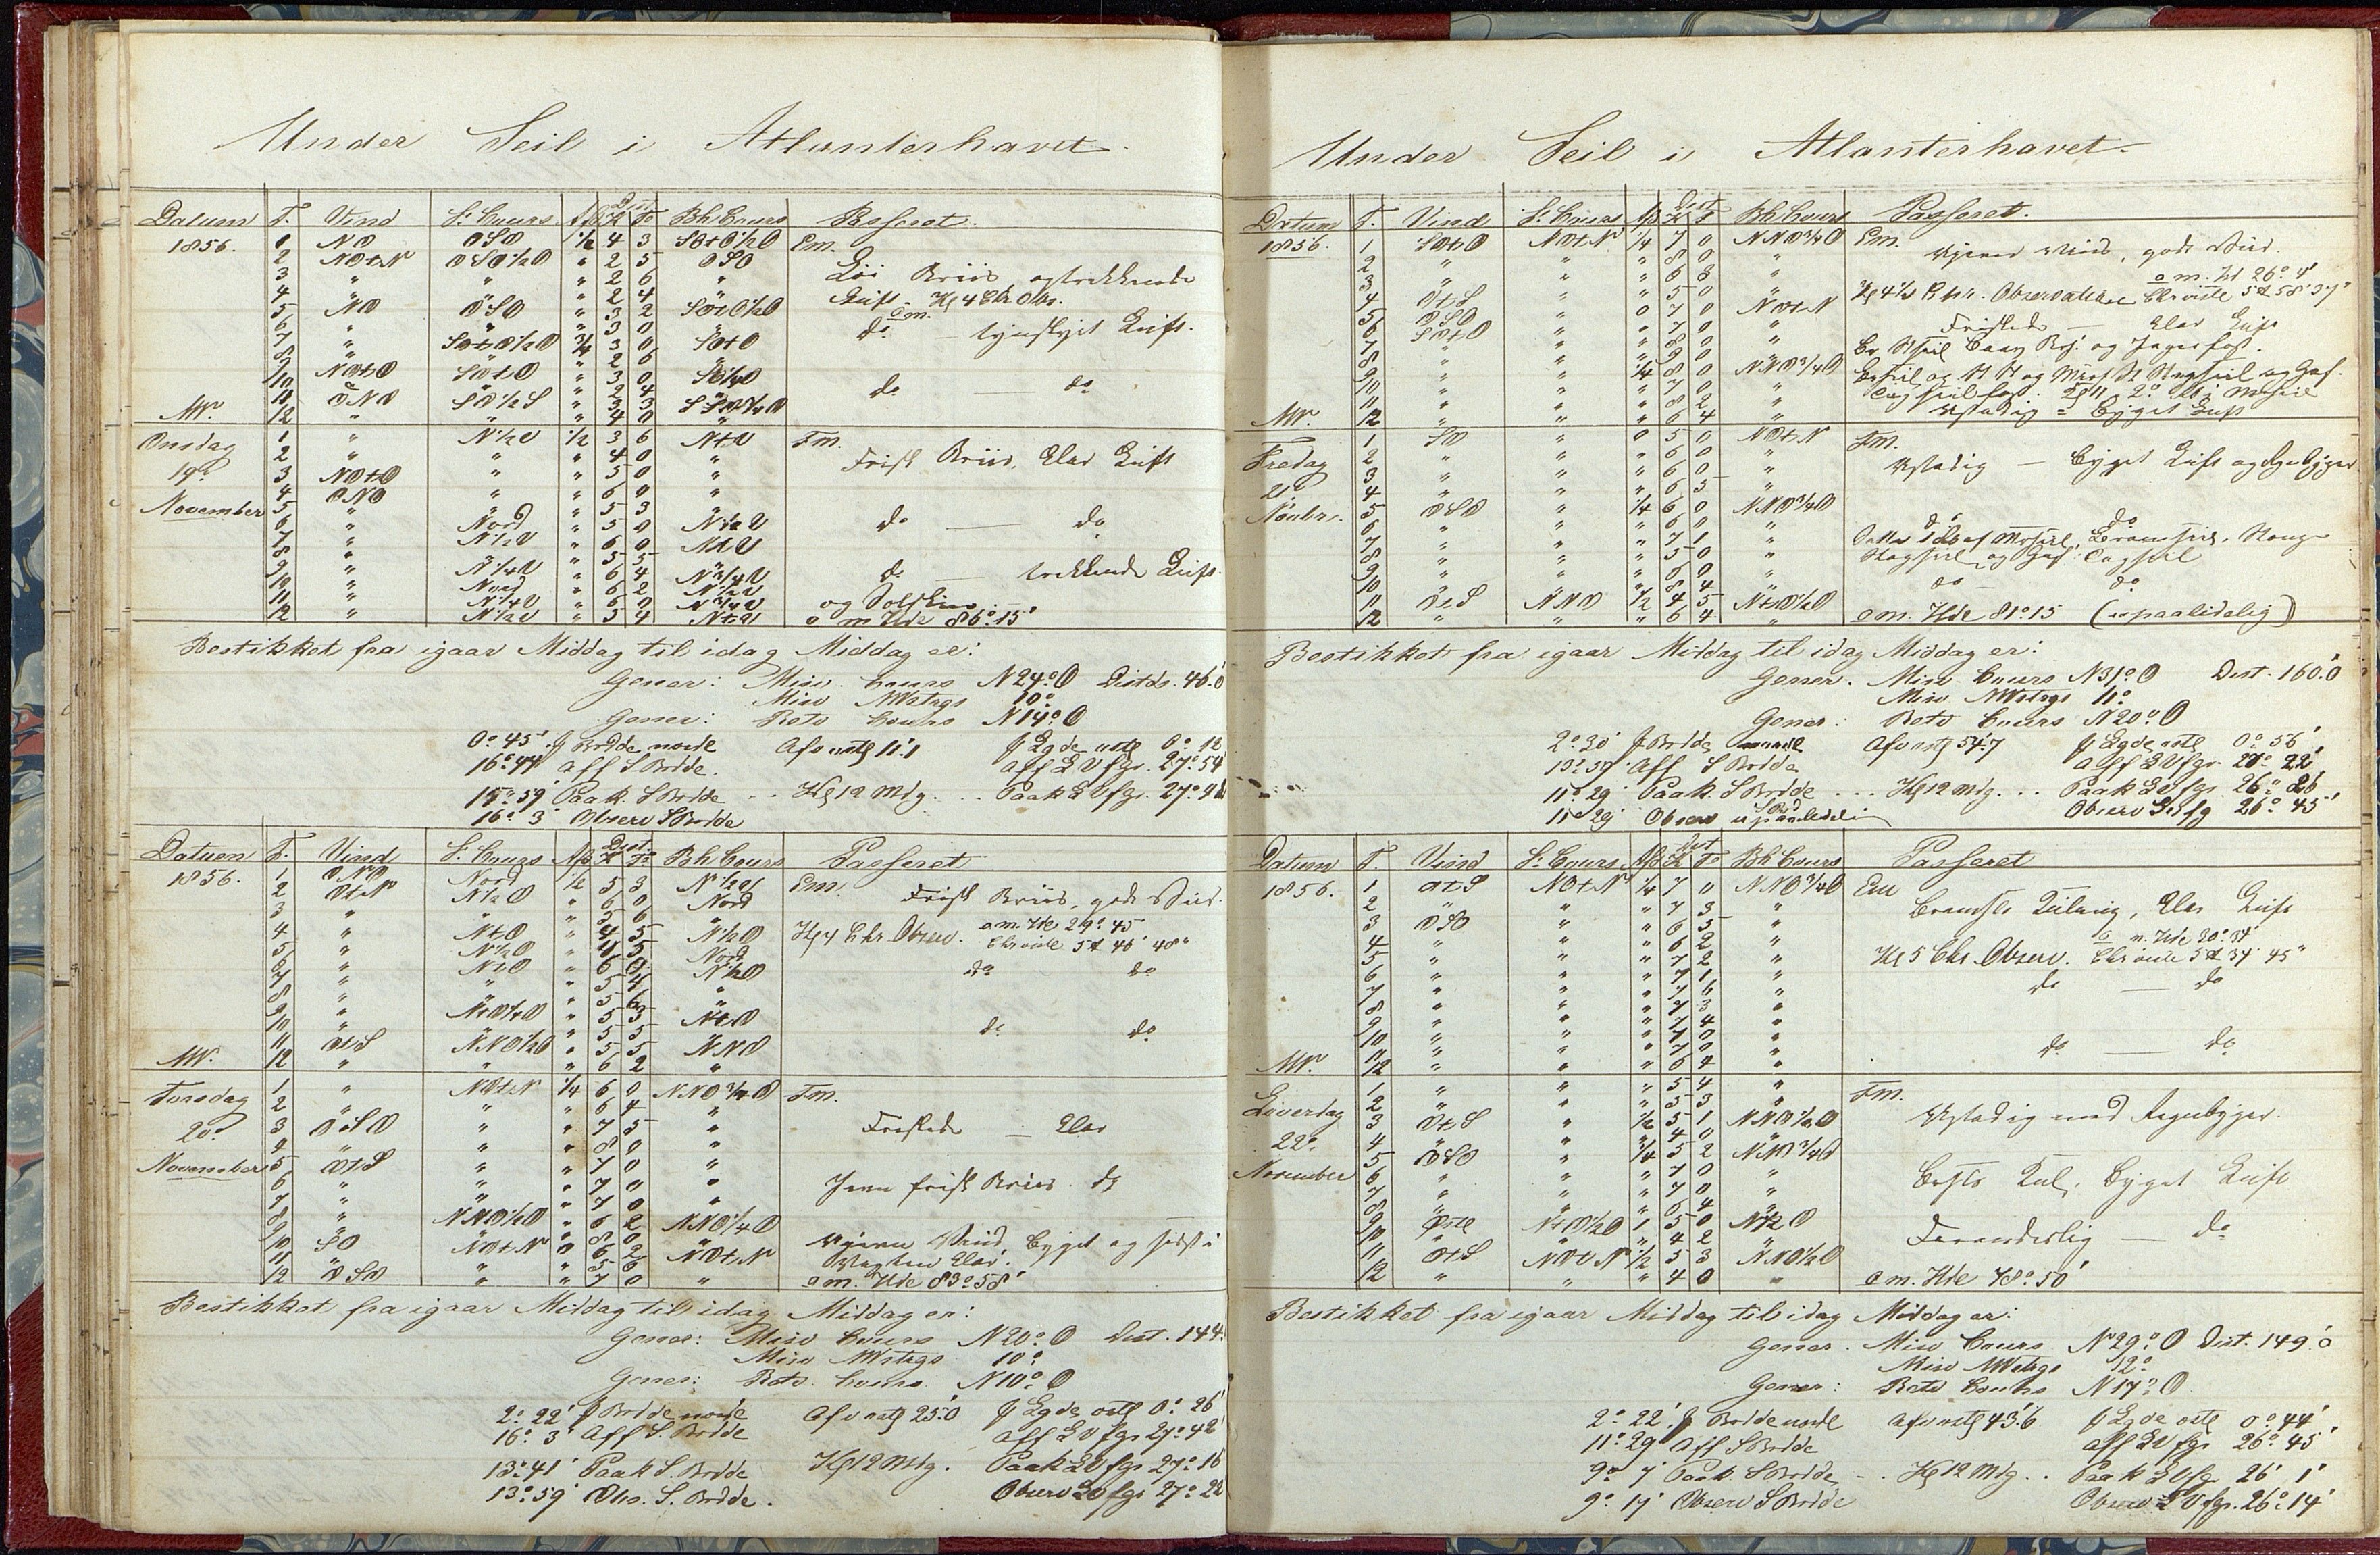 Under Seil i Atlanterhavet.
Datum T. Vind St. Cours Afd Dist K F Bh Cours Passeret.
1856. NO OSO 1/2 4 3 SOtO1/2O Em.
2 NOtN OSO1/2O " 2 5 OSO
3 " " " 2 6 " Löi Briis og trekkende
4 " " " 2 4 " Luft. Kl 4 Chr. Obs.
5 NO OSO " 3 2 SOtO1/2O
6 " " " 3 0 " do tyndskyet Luft.
7 " SOtO1/2O 3/4 3 0 SOtO
8 " " " 2 6 "
9 NOtO SOtO " 3 0
10 " " " 2 4 " do — do
11 ONO SO1/2S " 3 3
MW. 12 " " " 4 0
Onsdag 1 " N1/2V 1/2 3 6 NtV Fm.
2 " " " 4 0 " Frisk Briis, Klar Luft
19de 3 NOtO " " 5 0 "
4 ONO " " 6 0 "
November 5 " " " 5 3 "
6 " Nord " 5 0 do — do
7 " N1/2V " 6 0 NtV
8 " " " 5 5 "
9 " N1/4V " 6 4 N3/4V do — trekkende Luft.
10 " Nord " 6 2 N1/2V
11 " N1/4V " 6 0 N3/4V og Solskin.
12 " N1/2V " 5 4 NtV o m Hde 86° 15'
Bestikket fra igaar Middag til idag Middag er:
Gener: Misv. Cours N24°O Distds. 46.0
Misv 10°
Gener: Retv Cours N14°O
0° 45' f Bredde nord Afv ostlg 11'.1 f Lgde ostl 0° 12
16° 44' Aff S Bredde. Aff L V fgr. 27° 54'
15° 59' Paak. S Bredde .. Kl 12 Mdg. .. Paak L V fgr. 27° 42
16° 3' Observ S Bredde
Datum T. Vind St. Cours Afd Dist K F Bh Cours Passeret
1856. 1 ONO Nord 1/2 5 3 N1/2V Em.
2 OtN N1/2O " 6 0 Nord Frisk Briis, godt Veir.
3 " " " 5 6 " o m. Hde 29° 45'
4 " NtO " 4 5 N1/2O Kl 4 Chr. Observ. Chr viste 5t 46' 48"
5 " N1/2O " 4 5 Nord
6 " NtO " 6 0 N1/2O do do
7 " " " 5 4 "
8 " " " 5 6 "
9 " NtO1/2O " 5 3 NtO
10 " " " 5 5 " do do
11 OtS NNO1/2O " 5 5 NNO
MW. 12 " " " 6 2 "
Torsdag 1 " NOtN 1/4 6 0 NNO3/4O Fm.
2 " " " 6 4 "
20de 3 OSO " " 7 5 " Friskede — Klar
4 " " " 8 0 "
November 5 OtS " " 7 0 "
6 " " " 7 0 " Jevn frisk Briis. do
7 " " " 7 0 "
8 " NNO1/2O " 6 2 NNO1/4O
9 " " " 8 0 "
10 SO NOtN 0 6 2 NOtN
11 " " " 5 6 " Vagten Klar.
12 OSO " " 7 0 " o m. Hde 83° 58'
Bestikket fra igaar Middag til idag Middag er:
Gener: Misv Cours N20°O Dist. 144.
Misv 10°
Gener: Retv. Cours. N10°O
2° 22' f Bredde nord Afv ostlg 25'.0 f Lgde ostl 0° 26'
16° 3' Aff S. Bredde Aff L V fgr 27° 42'
13° 41' Paak S. Bredde Kl 12 Mdg. Paak L V fgr 27° 16
13° 59' Obs. S. Bredde. Observ L V fgr 27° 22
Under Seil i Atlanterhavet.
Datum T. Vind St. Cours Afd Dist K F Bh Cours Passeret.
1856. 1 SOtO NOtN 1/4 7 0 NNO3/4O Em.
2 " " " 8 0 " Veir.
3 " " " 6 3 " o m. Hd 26° 4'
4 OtS " " 5 0 " Kl 4 1/2 Chr. Observation Chr viste 5t 58' 37"
5 OSO " 0 7 0 NOtN
6 SOtO " " 7 0 " Friskede — Klar Luft
7 " " " 8 0 "
8 " " " 9 0 "
9 " " 1/4 8 0 NNO3/4O
10 " " " 7 0 "
11 " " " 8 2 "
MW. 12 " " " 6 4 " Ustadig — Byget Luft
1 SO " 0 5 0 NOtN Fm.
Fredag 2 " " " 6 0 "
3 " " " 6 0 " Ustadig — Byget Luft og Regnbyger
21de 4 " " " 6 5 "
Novbr. 5 OSO " 1/4 6 0 NNO3/4O
6 " " " 6 0 " do do
7 " " " 7 1 "
8 " " " 5 0 "
9 " " " 6 0 "
10 " " " 8 4 " do — do
11 OtS NNO 1/2 4 5 NtO1/2O
12 " " " 6 4 " o m. Hde 81° 15 (upaalidelig)
Bestikket fra igaar Middag til idag Middag er:
Gener. Misv. Cours N31°O Dist. 160.0
Misv 11°
Gener: Retv Cours N20°O
2° 30' f Bredde nord Afv ostlg 54'.7 f Lgde ostl 0° 56'
13° 59' Aff S Bredde Aff L V fgr. 27° 22'
11° 29' Paak. S Bredde ... Kl 12 Mdg. .. Paak L V fgr 26° 26
11° 29' Observ S Brd upaalidelig Observ L V fg 26° 45'
Datum T. Vind St. Cours. Afd Dist K F Bh Cours Passeret
1856. 1 OtS NOtN 1/4 7 0 NNO3/4O Em
2 " " " 7 3 "
3 OSO " " 6 5 " Bramsls Kuling, Klar Luft
4 " " " 6 2 " o m. Hde 30° 34'
5 " " " 7 2 " Kl 5 Chr. Observ. Chr viste 5t 34' 45"
6 " " " 7 1 " do — do
7 " " " 7 6 "
8 " " " 7 3 "
9 " " " 7 4 "
10 " " " 7 0 "
11 " " " 7 0 " do — do
MW. 12 " " " 6 4 "
1 " " " 5 4 " Fm.
Löverdag 2 " " " 5 3 " Ustadig med Regnbyger.
3 OtS " 1/2 5 1 NNO1/2O
22de 4 " " " 4 0 "
5 OSO " 3/4 5 2 NNO3/4O
November 6 " " " 7 0 " Byget Luft
7 " " " 7 0 "
8 " " " 6 4 "
9 Ost NtO1/2O 1 5 0
10 " " " 4 2 " Foranderlig — do
11 OtS NOtN 1/2 5 3 NNO1/2O
12 " " " 4 0 " o m. Hde 78° 50'
Bestikket fra igaar Middag til idag Middag er:
Gener. Misv Cours N29°O Dist. 149.0
Misv 12°
Gener: Retv Cours N17°O
2° 22' f Bredde nord Afv ostlg 43'.6 f Lgde ostl 0° 44'
11° 29' Aff S Bredde Aff L V fgr 26° 45'
9° 7' Paak S Bredde .. Kl 12 Mdg .. Paak L V fg 26° 1'
9° 17' Observ S Bredde Observ L V fgr. 26° 14'